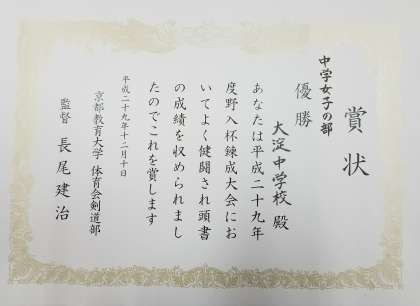 賞状
中学女子の部
優勝
大淀中学校 殿
あなたは平成二十九年
度野入杯錬成大会にお
いてよく健闘され頭書
の成績を収められまし
たのでこれを賞します
平成二十九年十二月十日
京都教育大学 体育会剣道部
監督 長尾建治